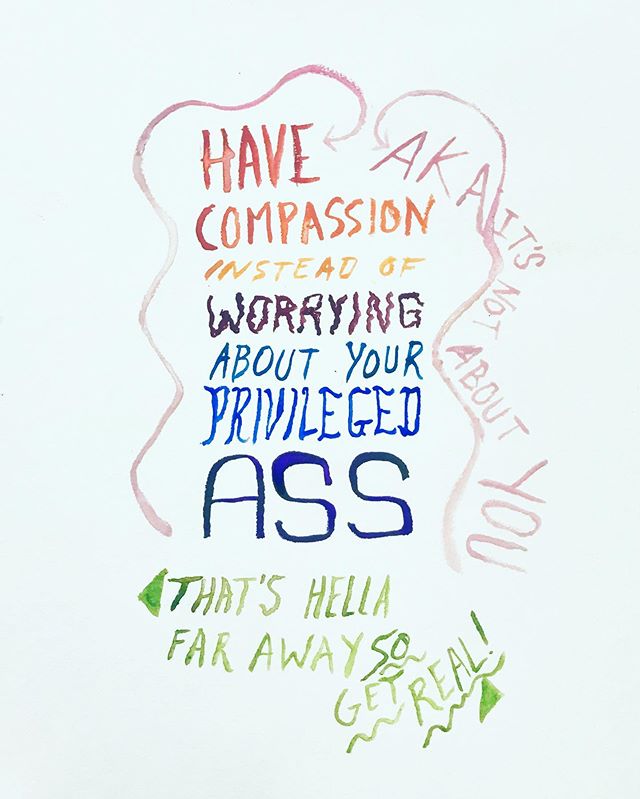 HAVE
COMPASSION
INSTEAD OF
WORRYING
ABOUT YOUR
PRIVILEGED
ASS
AKA IT'S NOT ABOUT YOU
THAT'S HELLA
FAR AWAY SO
GET REAL!